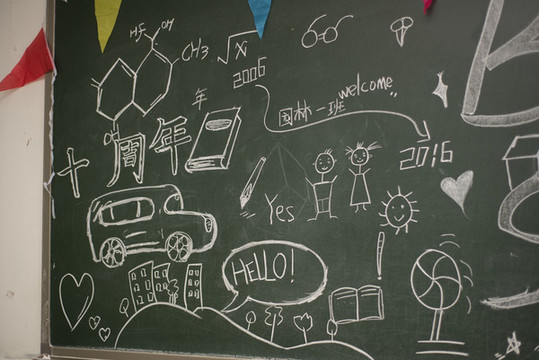 HF OH
CH3
√x
2006
welcome..
年
园林一班
十周年
2016
Yes
HELLO!